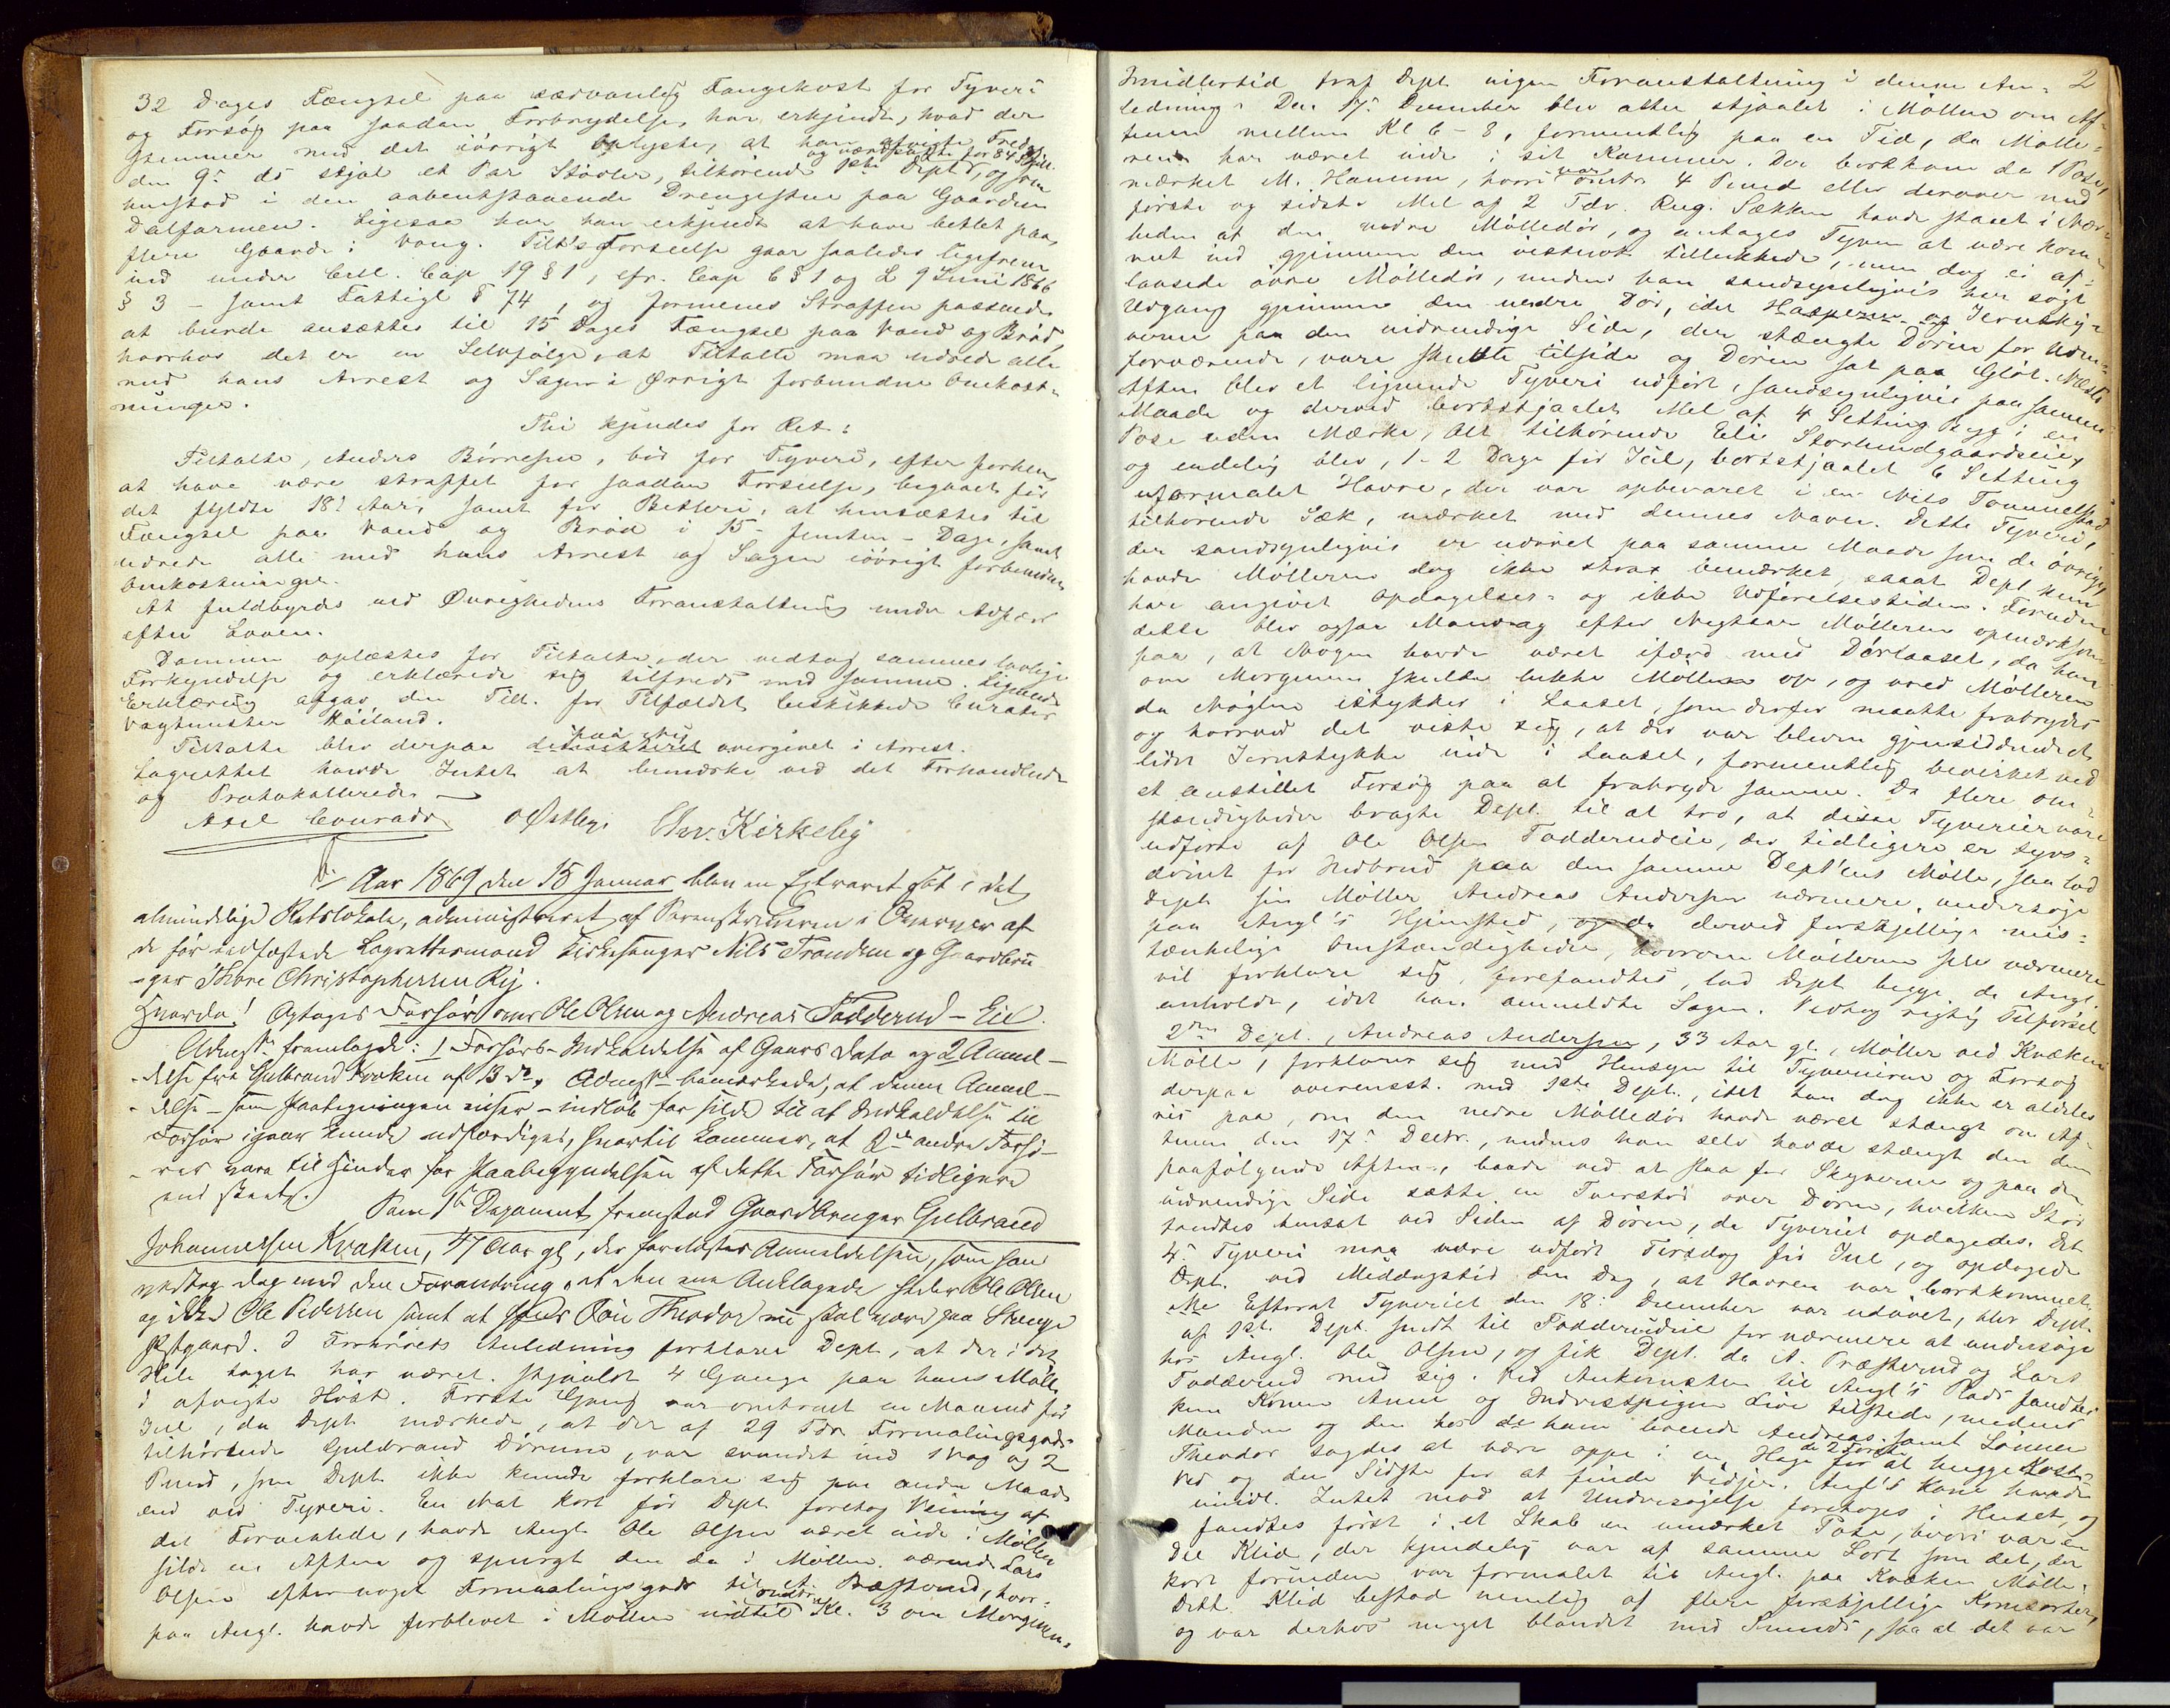 32 Dages Fængsel paa sædvanlig Fangekost for Tyveri
og Forsøg paa saadan Forbrydelse, har erkjendt, hvad der
stemmer med det iövrigt oplyste, at han afvigte Fredag
den 9de ds stjal et Par Stövler, tilhörende 1ste Dept, og værdsatte for 84 Skill. og som
henstod i den aabentstaaende Drengestue paa Gaarden
Dalfarmen. Ligesaa har han erkjendt at have betlet paa
flere Gaarde i Vang. Tilt's Forseelse gaar saaledes ligefrem
ind under Crll. Cap 19 § 1, cfr. Cap 6 § 1 og L 9 Juni 1866
§ 3 - samt Fattigl § 74, og formenes Straffen passende
at burde ansættes til 15 Dages Fængsel paa Vand og Bröd,
hvorhos det er en Selvfölge, at Tiltalte maa udrede alle
med hans Arrest og Sagen i Øvrigt forbundne Omkost-
ninger.
Thi kjendes for Ret:
Tiltalte, Anders Börresen, bör for Tyveri, efter forhen
at have være straffet for saadan Forseelse, begaaet för
det fyldte 18de Aar, samt for Betleri, at hensættes til
Fængsel paa Vand og Bröd i 15 - femten - Dage, samt
udrede alle med hans Arrest og Sagen iövrigt forbundne
Omkostninger.
At fuldbyrdes ved Øvrighedens Foranstaltning under Adfærd
efter Loven.
Dommen oplæstes for Tiltalte, der vedtog sammes lovlige
Forkyndelse og erklærede sig tilfreds med samme. Lignende
Erklæring afgav den Tilt. for Tilfældet beskikkede Curator
Vagtmester Höiland.
Tiltalte blev derpaa paa ny overgivet i Arrest.
Lagrettet havde Intet at bemærke ved det Forhandlede
og Protokollerede.
Axel Conradi OØstbye Chr. Kirkeby
Aar 1869 den 15 Januar blev en Extraret sat i det
almindelige Retslokale, administreret af Sorenskriveren i Overvær af
de för edfæstede Lagrettesmænd Kirkesanger Nils Tronsen og Gaardbru-
-ger Thore Christophersen Ry.
Hvorda! Optages Forhör over Ole Olsen og Andreas Fodderud-Eie.
Admst. fremlagde: 1 Forhörs-Indkaldelse af Gaars Dato og 2 Anmel-
-delse fra Gulbrand Kvæken af 13 ds. Admst. bemærkede, at denne Anmel-
-delse - som Paategningen viser - indlöb for silde til at Indkaldelse til
Forhör igaar kunde udfærdiges, hvortil kommer, at 2de andre Forhö-
-rer vare til Hinder for Paabegyndelsen af dette Forhör tidligere
end skeet.
Som 1ste Deponent fremstod Gaardbruger Gulbrand
Johannesen Kvæken, 47 Aar gl, der forelæstes Anmeldelsen, som han
vedtog dog med den Forandring at den ene Anklagede heder Ole Olsen
og ikke Ole Pedersen samt at Theodor nu skal være paa Stange
Præstgaard. I Forhörets Anledning forklarer Dept, at der i det
Hele taget har været stjaalet 4 Gange paa hans Mölle
i afvigte Höst. Förste Gang var omtrent en Maaned för
Jul, da Dept mærkede, at der af 29 Tdr Formalingsgods
tilhörende Guldbrand Dörum, var svundet ind 1 Vog og 2
Pund, som Dept. ikke kunde forklare sig paa anden Maade
end ved Tyveri. En Nat kort för Dept foretog Veining af
det Formentlede, havde Angl. Ole Olsen været inde i Möllen
silde en Aften og spurgt den da i Möllen værende Lars
Olsen efter noget Formalingsgods til A. Præsterud, hvor-
paa Angl. havde forblevet i Möllen indtil Kl. 3 om Morgenen.
2
Imidlertid traf Dept ingen Foranstaltning i denne An-
ledning. Den 17de December blev atter stjaalet i Möllen om Af-
tenen mellem Kl 6 - 8, formentlig paa en Tid, da Mölle-
ren har været inde i sit Kammer. Der bortkom da 1 Pose,
mærket M. Hamum, hvori var omtr. 4 Pund eller derover med
förste og sidste Mel af 2 Tdr. Rug. Sækken havde staaet i Nær-
heden af den nedre Mölledör, og antages Tyven at være kom-
met ind gjennem den vistnok tillukkede, men dog ei af-
laasede övre Mölledör, medens han sandsynligvis har sögt
Udgang gjennem den nedre Dör, idet Hasperne og Jernsky-
verne paa den indvendige Side, der stængte Dören for Uden-
forværende, vare skudte tilside og Dören sat paa Glöt. Næste
Aften blev et lignende Tyveri udfört, sandsynligvis paa samme
Maade og derved bortstjaalet Mel af 4 Setting Byg i en
Pose uden Mærke, Alt tilhörende Elie Storlundgaardseie,
og endelig blev, 1-2 Dage för Jul, bortstjaalet 6 Setting
uformalet Havre, der var opbevaret i en Nils Tommelstad
tilhörende Sæk, mærket med dennes Navn. Dette Tyveri,
der sandsynligvis er udövet paa samme Maade som de övrige,
havde Mölleren dog ikke strax bemærket, saaat Dept. kun
har angivet Opdagelses- og ikke Udförelsestiden. Foruden
dette blev ogsaa Mandag efter Nytaar Mölleren opmærksom
paa, at Nogen havde været ifærd med Dörlaaset, da han
om Morgenen skulde lukke Möllen op, og vred Mölleren
da Nöglen istykker i Laaset, som derfor maatte frabrydes
og hvorved det viste sig, at der var bleven gjensiddende et
lidet Jernstykke inde i Laaset, formentlig bevirket ved
et anstillet Forsög paa at frabryde samme. Da flere Om-
stændigheder bragte Dept. til at tro, at disse Tyverier vare
udförte af Ole Olsen Fodderudeie, der tidligere er tyvs-
dömt for Indbrud paa den samme Dept'ens Mölle, saa lod
Dept. sin Möller Andreas Andersen nærmere undersöge
paa Angl's Hjemsted, og da derved forskjellige mis-
tænkelige Omstændigheder, hvorom Mölleren selv nærmere
vil forklare sig, forefandtes, lod Dept. begge de Angl.
anholde, idet han anmeldte Sagen. Vedtog rigtig Tilförsel
2den Dept., Andreas Andersen, 33 Aar gl., Möller ved Kvækens
Mölle, forklarer sig med Hensyn til Tyverierne og Forsög
derpaa overensst. med 1ste Dept., idet han dog ikke er aldeles
vis paa, om den nedre Mölledör havde været stængt om Af-
tenen den 17de Decbr., medens han selv havde stængt den den
paafölgende Aften, baade ved at slaa for Skyverne og paa den
indvendige Side sætte en Tverstör over Dören, hvilken Stör
fandtes hensat ved Siden af Dören, da Tyveriet opdagedes. Det
4de Tyveri maa være udfört Tirsdag för Jul, og opdagede
Dept. ved Middagstid den Dag, at Havren var bortkommet.
Efterat Tyveriet den 18de December var udövet, blev Dept.
af 1ste Dept. sendt til Fodderudeie for nærmere at undersöge
hos Angl. Ole Olsen, og fik Dept. da A. Præsterud og Lars
Fodderud med sig. Ved Ankomsten til Angl's Plads fandtes
kun Konen Anne og Indrestpigen Live tilstede, medens
Manden og den hos ham boende Andreas, samt Sönnen
Theodor sagdes at være oppe i en Hage de 2 förste for at hugge Koste-
ved og den Sidste for at finde Vidjer. Angl's Kone havde
imidl. Intet mod at Undersögelse foretoges i Huset, og
fandtes först i et Skab en umærket Pose, hvori var en
Del Klid, der kjendelig var af samme Sort som det, der
kort forinden var formalet til Angl. paa Kvæken Mölle.
Dette Klid bestod nemlig af flere forskjellige Kornsorter,
og var derhos meget blandet med Smuds, saa at det var